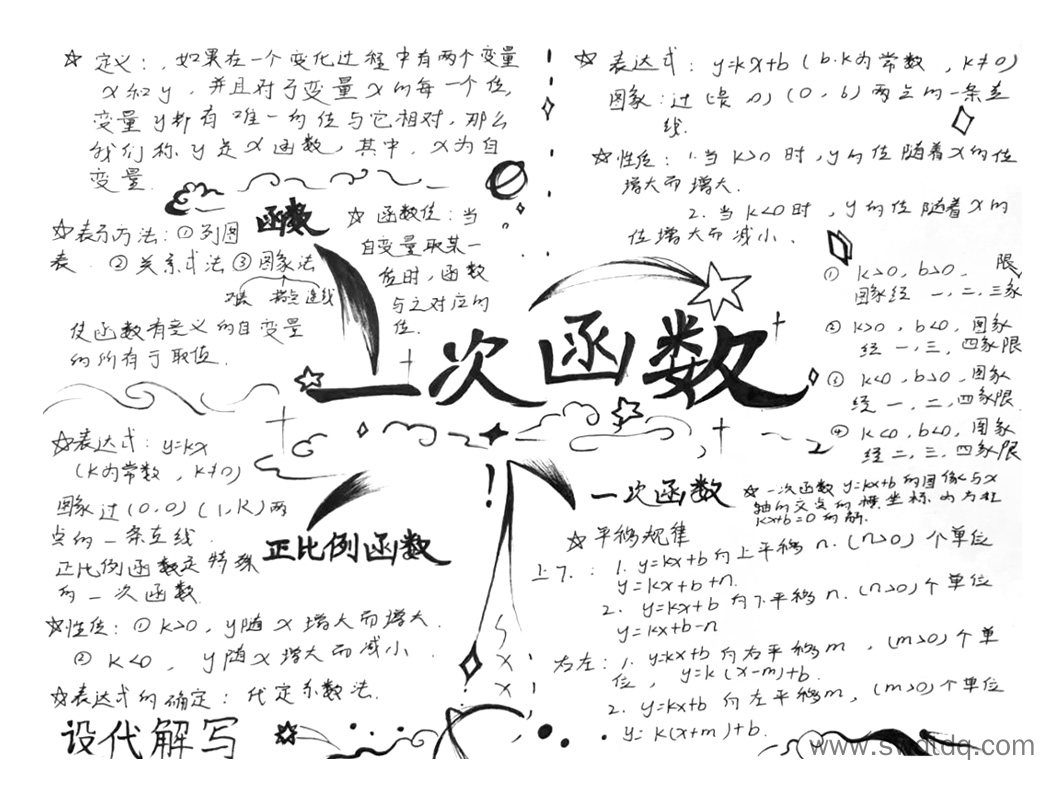 ☆ 定义：，如果在一个变化过程中有两个变量
x和y，并且对于变量x的每一个值，
变量y都有唯一的值与它相对，那么
我们称y是x函数，其中，x为自
变量．
函数
☆表示方法：①列图
表．②关系式法③图象法
描点 连线
使函数有意义的自变量
的所有于取值．
☆ 函数值：当
自变量取某一
值时，函数
与之对应的
值．
☆ 表达式：y=kx+b（b．k为常数，k≠0）
图象：过 0）（0，b）两点的一条直
线．
☆性值：1．当 k>0 时，y的值随着x的值
增大而增大．
2．当 k<0时，y的值随着x的
值增大而减小．
① k>0，b>0， 限
图象经 一，二，三象
② k>0，b<0，图象
经 一，三，四象限
③ k<0，b>0，图象
经 一，二，四象限．
④ k<0，b<0，图象
经 二，三，四象限
一次函数
☆表达式：y=kx
（k为常数，k≠0）
图象过（0，0）（1，k）两
点的一条直线．
正比例函数是特殊
的一次函数．
正比例函数
☆性值：① k>0，y随x增大而增大．
② k<0，y随x增大而减小．
☆表达式的确定：代定系数法．
设代解写
一次函数
☆ 一次函数 y=kx+b 的图像与x
轴的交点的横坐标 为方程
kx+b=0的解．
☆平移规律
上下：1．y=kx+b向上平移 n．（n>0）个单位
y=kx+b+n．
2．y=kx+b 向下平移 n．（n>0）个单位
y=kx+b-n
右左：1．y=kx+b 向右平移m，（m>0）个单
位，y=k（x-m）+b．
2．y=kx+b 向左平移m，（m>0）个单位
y=k（x+m）+b．
www.swdtdq.com